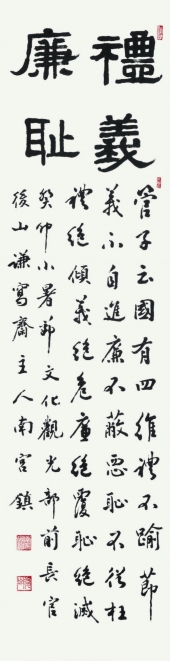 禮義
廉恥
管子云國有四維禮不踰節
義不自進廉不蔽惡恥不從枉
禮絕傾義絕危廉絕覆恥絕滅
癸卯小暑節文化觀光部前長官
後山謙寫齋主人南宮鎮